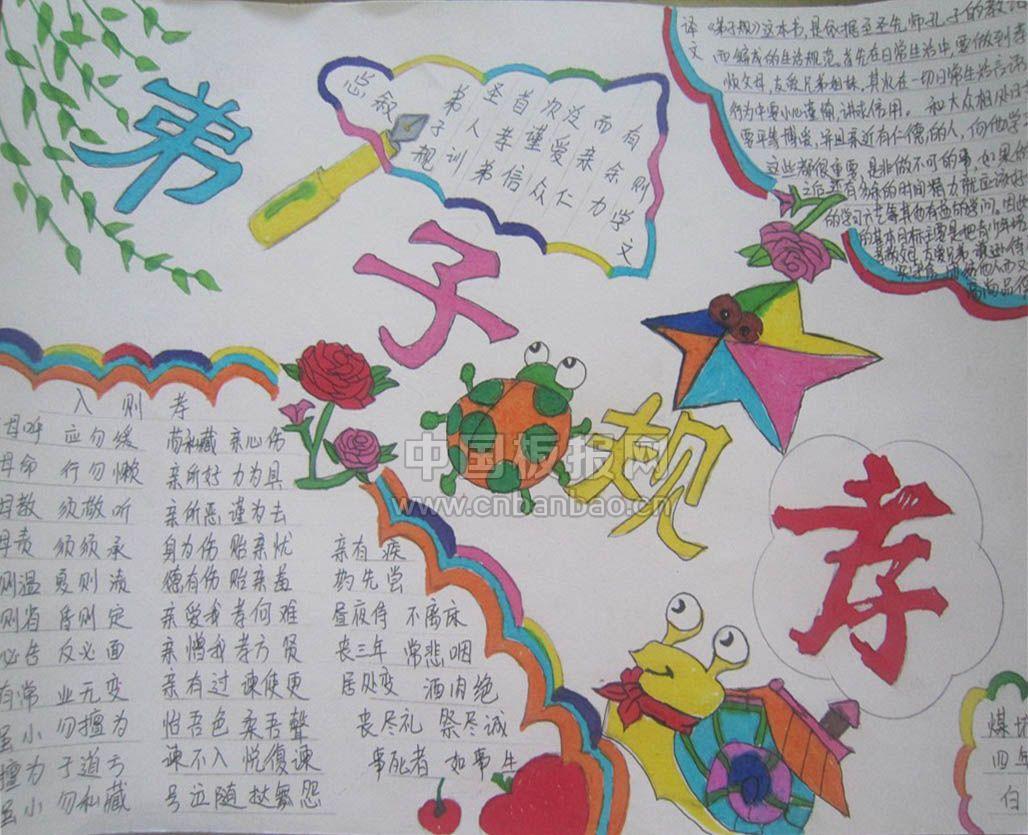 弟子规
孝
总叙
弟子规
圣人训
首孝弟
次谨信
泛爱众
而亲仁
有余力
则学文
译文
《弟子规》这本书,是依据至圣先师孔子的教
而编成的生活规范。首先在日常生活中,要做到孝
顺父母,友爱兄弟姐妹。其次在一切日常生活言
行为中要小心谨慎,讲求信用。和大众相处
要平等博爱,并且亲近有仁德的人,向他学
这些都很重要,是非做不可的事,如果
之后,还有多余的时间精力,就应该好
的学习六艺等其他有益的学问。
入则孝
呼 应勿缓 苟私藏 亲心伤
母命 行勿懒 亲所好 力为具
母教 须敬听 亲所恶 谨为去
母责 须须承 身为伤 贻亲忧 亲有疾
则温 夏则凊 德有伤 贻亲羞 药先尝
则省 昏则定 亲爱我 孝何难 昼夜侍 不离床
必告 反必面 亲憎我 孝方贤 丧三年 常悲咽
有常 业无变 亲有过 谏使更 居处变 酒肉绝
虽小 勿擅为 怡吾色 柔吾聲 丧尽礼 祭尽诚
擅为 子道亏 谏不入 悦復谏 事死者 如事生
虽小 勿私藏 号泣随 挞無怨
中国板报网
www.cnbanbao.cn
四年
白